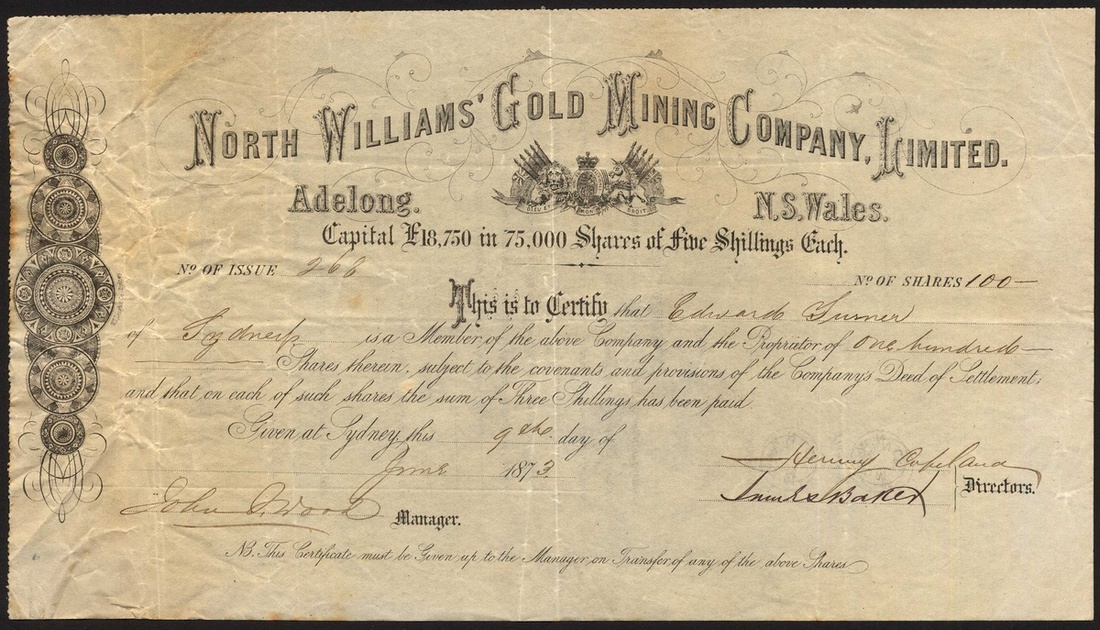 NORTH WILLIAMS' GOLD MINING COMPANY, LIMITED.
DIEU ET MON DROIT
Adelong. N.S. Wales.
Capital £18,750 in 75,000 Shares of Five Shillings Each.
No. OF ISSUE 268 No. OF SHARES 100—
This is to Certify that Edward Turner
of Sydney is a Member of the above Company and the Proprietor of One hundred—
Shares therein, subject to the covenants and provisions of the Company's Deed of Settlement;
and that on each of such shares the sum of Three Shillings has been paid
Given at Sydney, this 9th. day of
June 1873.
Henry Copeland
Baker Directors.
John Wood Manager.
NB. This Certificate must be Given up to the Manager on Transfer of any of the above Shares